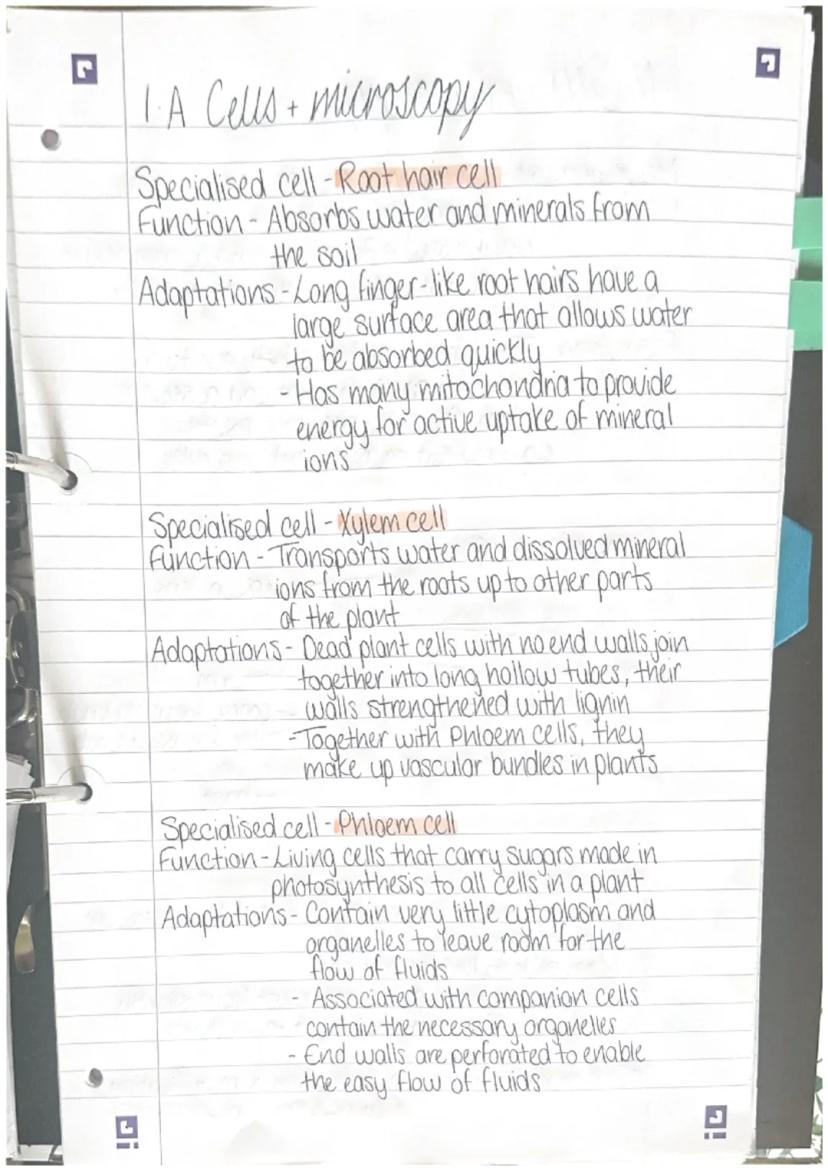 1.A Cells + microscopy
Specialised cell - Root hair cell
Function - Absorbs water and minerals from
the soil
Adaptations - Long finger-like root hairs have a
large surface area that allows water
to be absorbed quickly
- Has many mitochondria to provide
energy for active uptake of mineral
ions
Specialised cell - Xylem cell
Function - Transports water and dissolved mineral
ions from the roots up to other parts
of the plant
Adaptations - Dead plant cells with no end walls join
together into long hollow tubes, their
walls strengthened with lignin
- Together with Phloem cells, they
make up vascular bundles in plants
Specialised cell - Phloem cell
Function - Living cells that carry sugars made in
photosynthesis to all cells in a plant
Adaptations - Contain very little cytoplasm and
organelles to leave room for the
flow of fluids
- Associated with companion cells
contain the necessary organelles
- End walls are perforated to enable
the easy flow of fluids